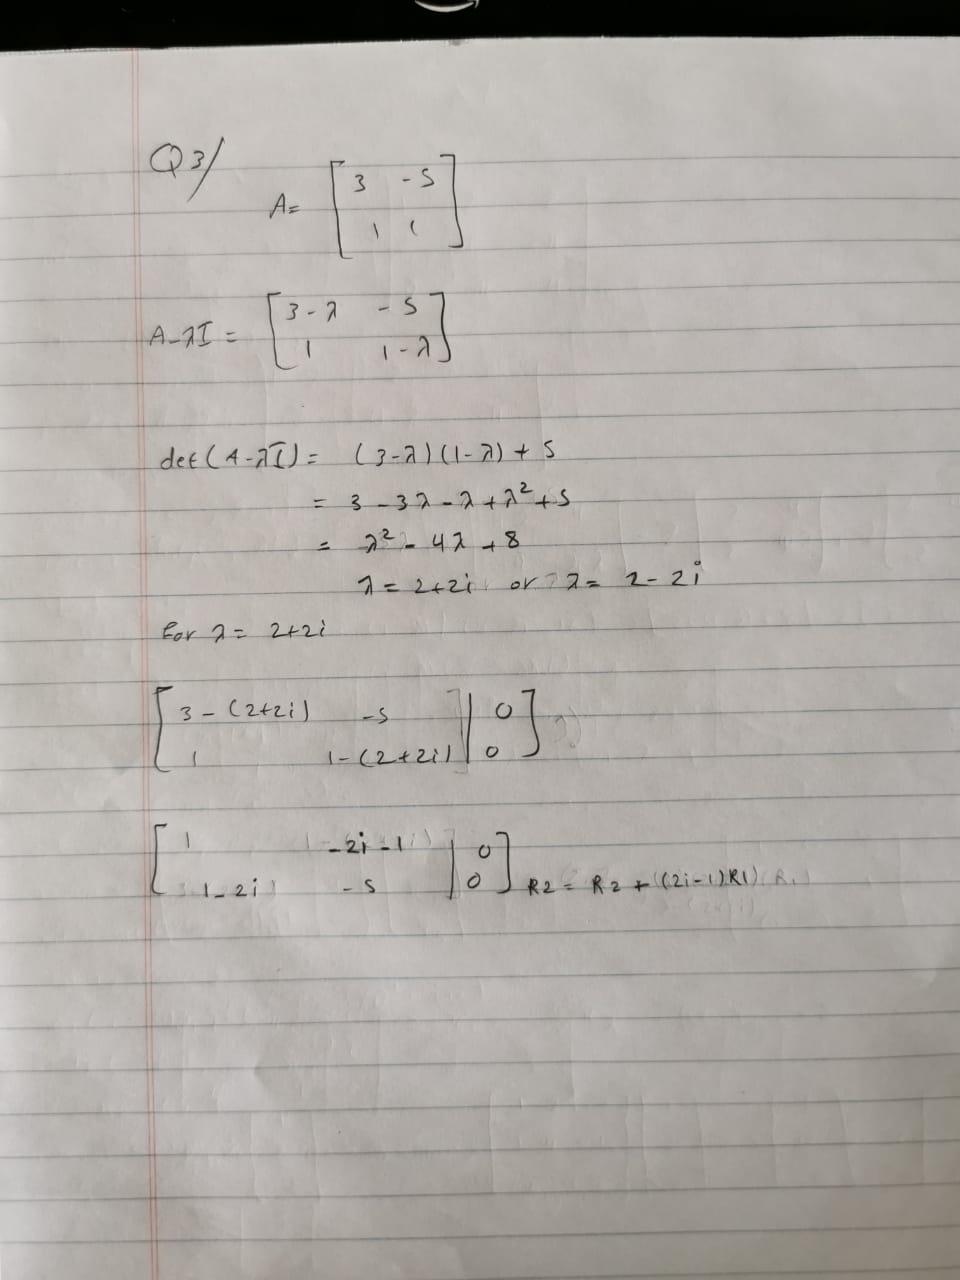 Q3/
A= [ 3 -5
1 1 ]
A-λI = [ 3-λ -5
1 1-λ ]
det(A-λI) = (3-λ)(1-λ)+5
= 3-3λ-λ+λ²+5
= λ²-4λ+8
λ=2+2i or λ= 2-2i
for λ= 2+2i
[ 3-(2+2i) -5 | 0
1 1-(2+2i) | 0 ]
[ 1 -2i-1 | 0
1-2i -5 | 0 ] R2 = R2 + ((2i-1)R1)